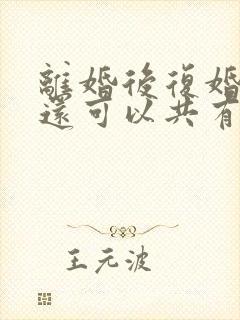 離婚後復婚
還可以共有
王元波